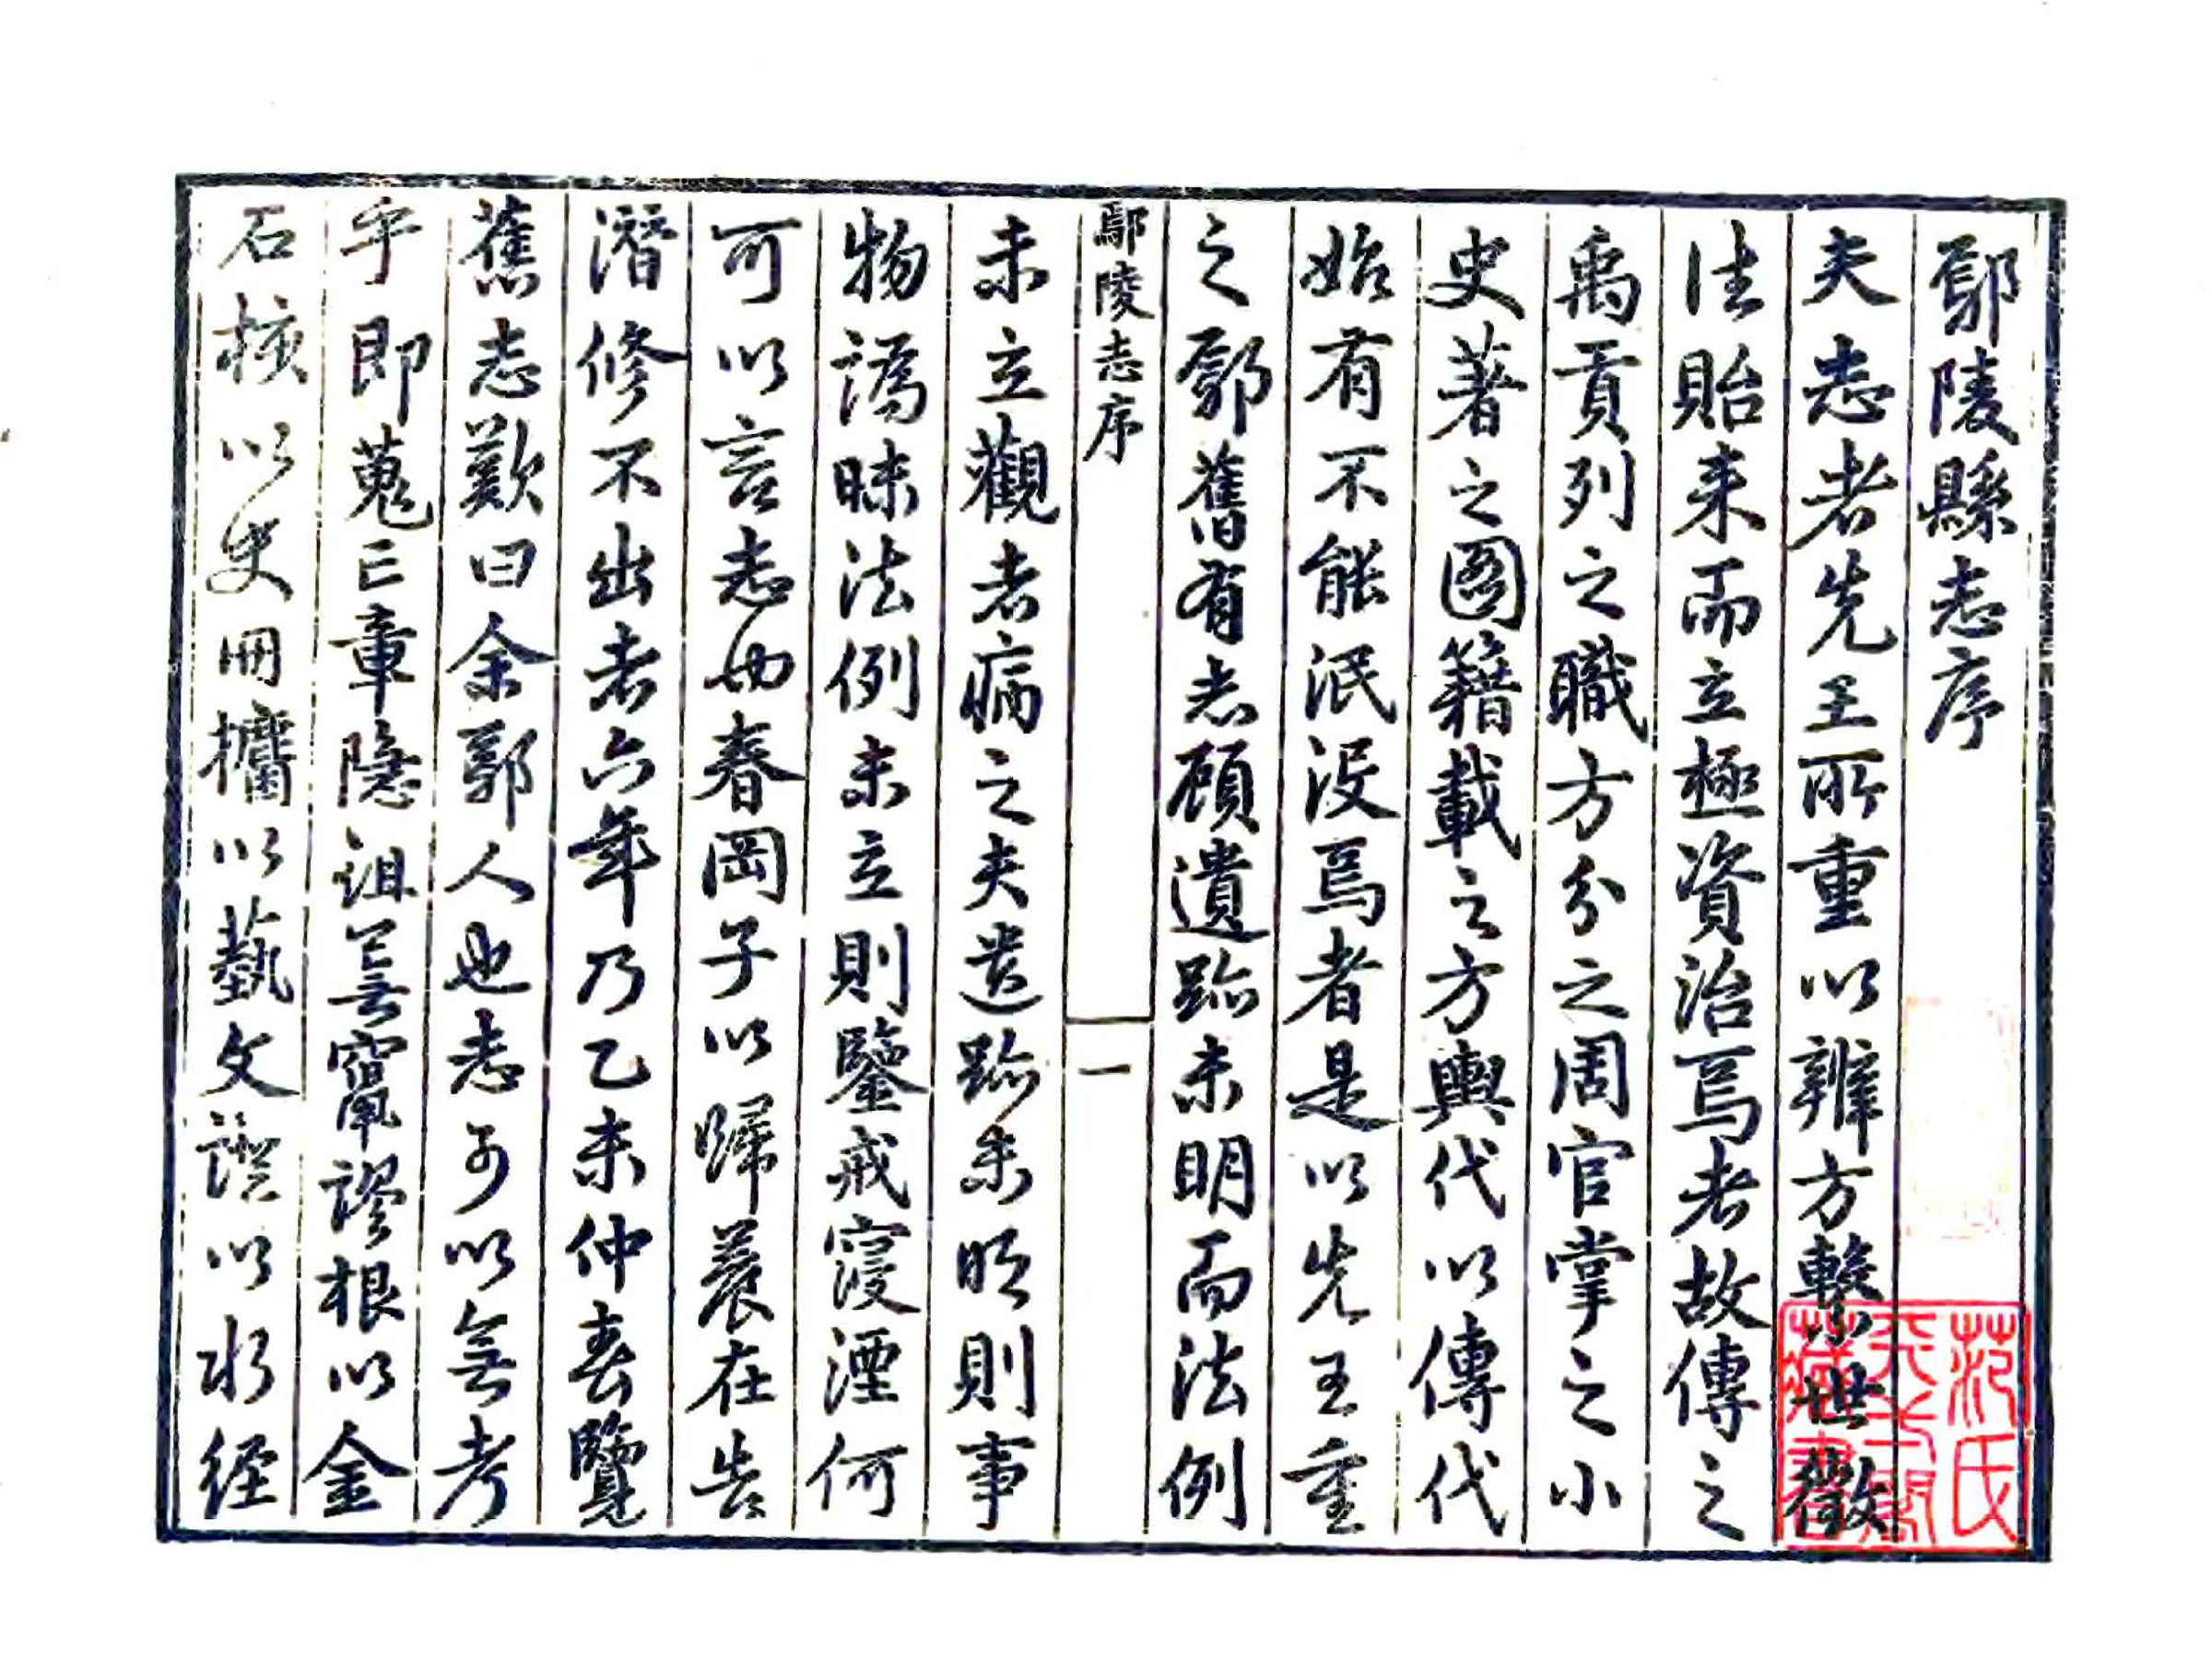 鄢陵縣志序
夫志者先王所重以辨方繫世徵
往貽来而立極資治焉者故傳之
禹貢列之職方分之周官掌之小
史著之圖籍載之方輿代以傳代
始有不能泯没焉者是以先王重
之鄢舊有志顧遺跡未明而法例
鄢陵志序
一
未立觀者病之夫遺跡未明則事
物譌昧法例未立則鑒戒寖湮何
可以言志也春岡子以歸養在告
潛修不出者六年乃乙未仲春覽
舊志歎曰余鄢人也志可以無考
乎即蒐亡章隐詛善竄謬根以金
石核以史冊攟以藝文證以水经
范氏天一閣藏書